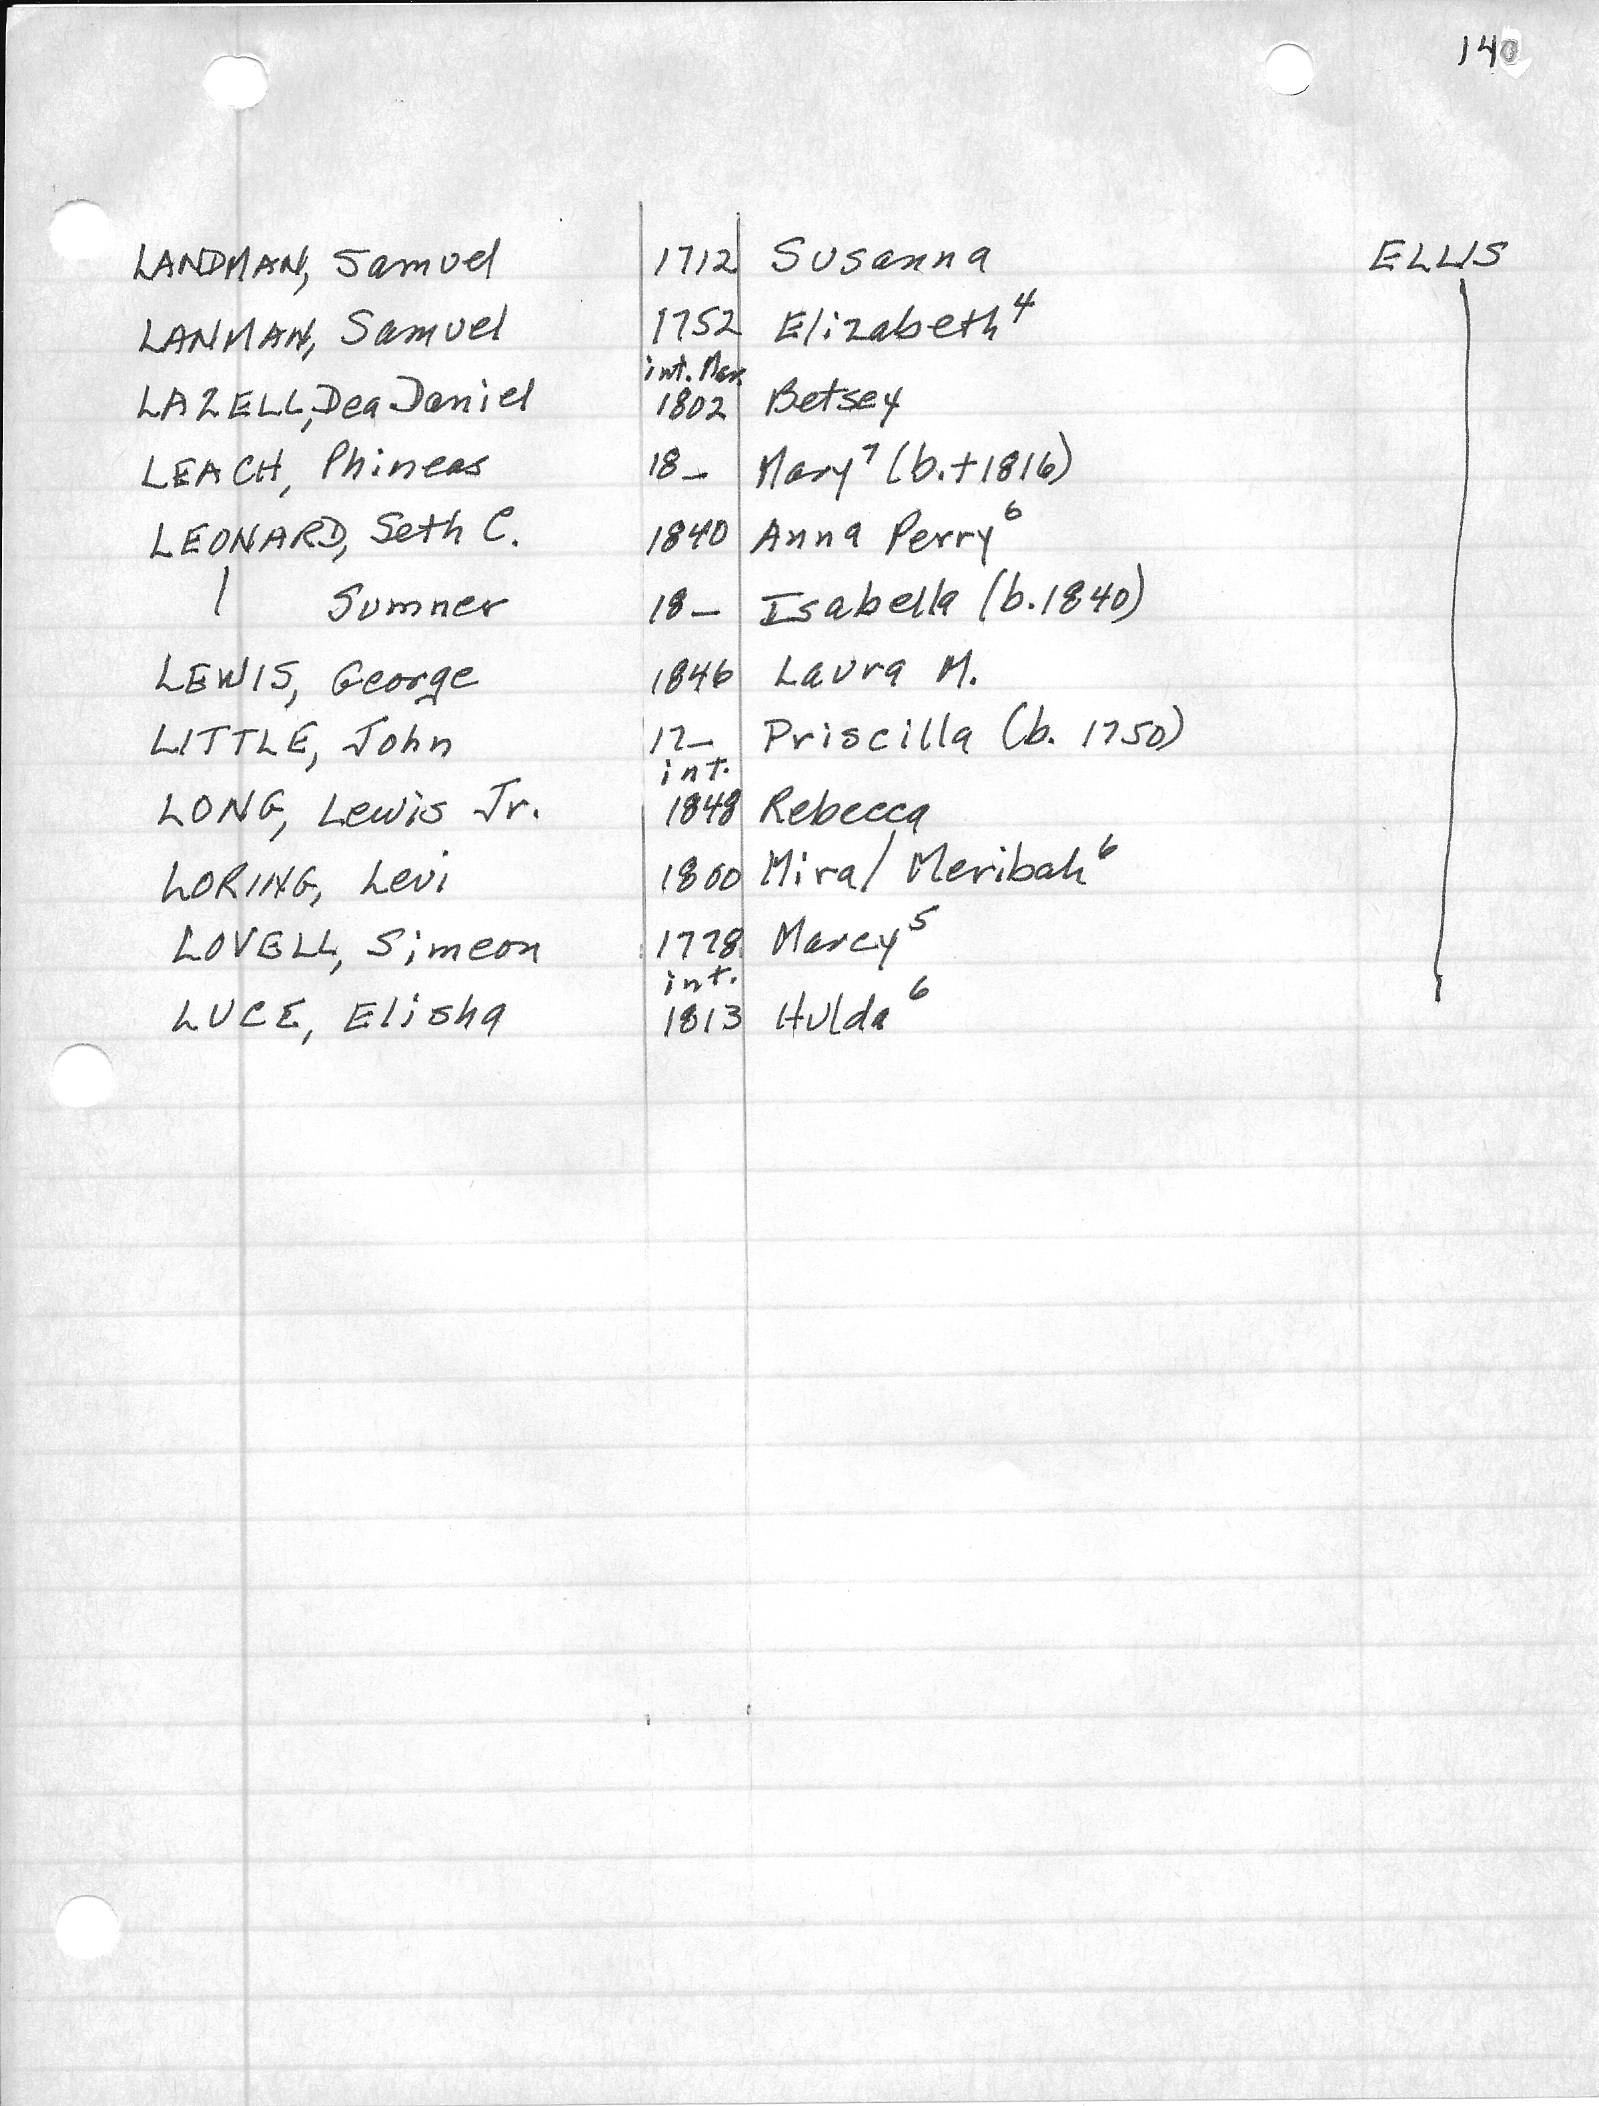 140
LANDMAN, Samuel 1712 Susanna ELLIS
LANMAN, Samuel 1752 Elizabeth⁴
int. Mar.
LAZELL, Dea Daniel 1802 Betsey
LEACH, Phineas 18_ Mary⁷ (b.+1816)
LEONARD, Seth C. 1840 Anna Perry⁶
Sumner 18_ Isabella (b.1840)
LEWIS, George 1846 Laura M.
LITTLE, John 17_ Priscilla (b. 1750)
int.
LONG, Lewis Jr. 1848 Rebecca
LORING, Levi 1800 Mira/Meribah⁶
LOVELL, Simeon 1778 Marcy⁵
int.
LUCE, Elisha 1813 Hulda⁶